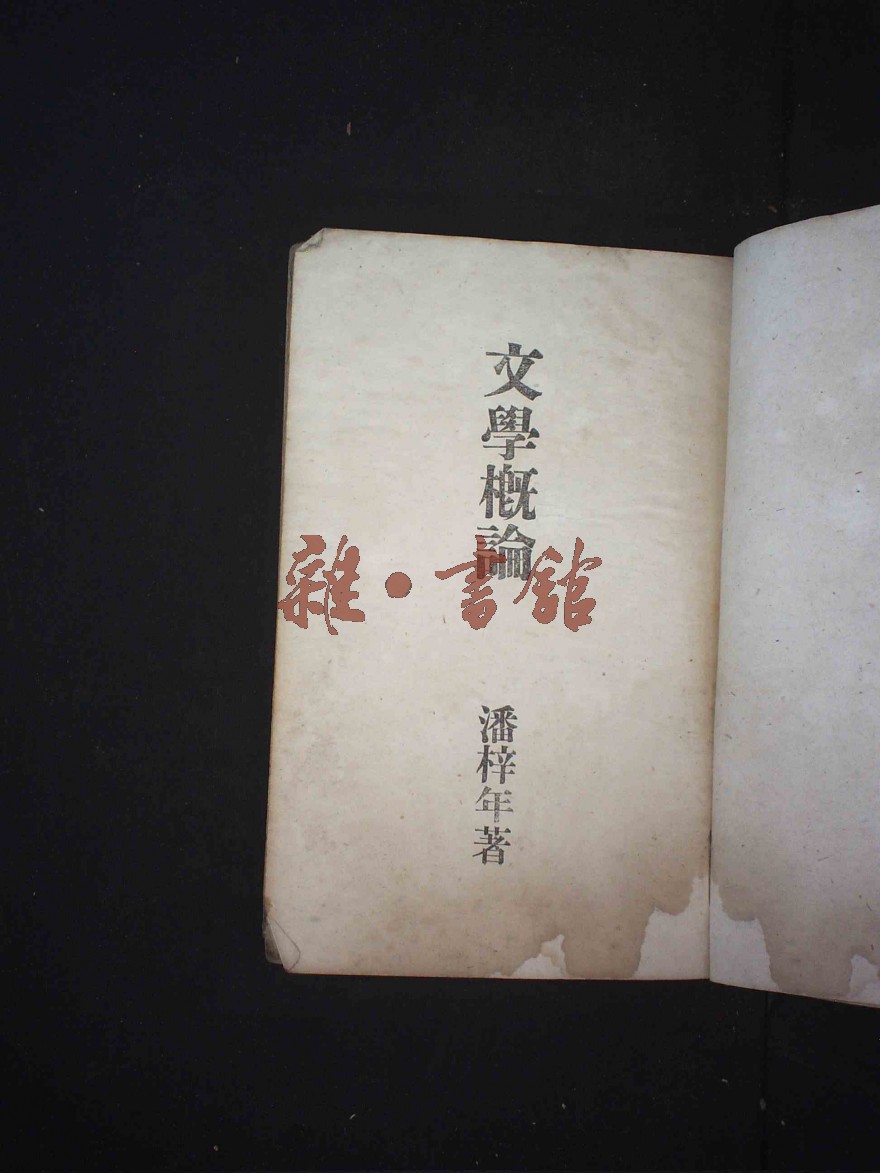 文學概論
雜·書館
潘梓年著